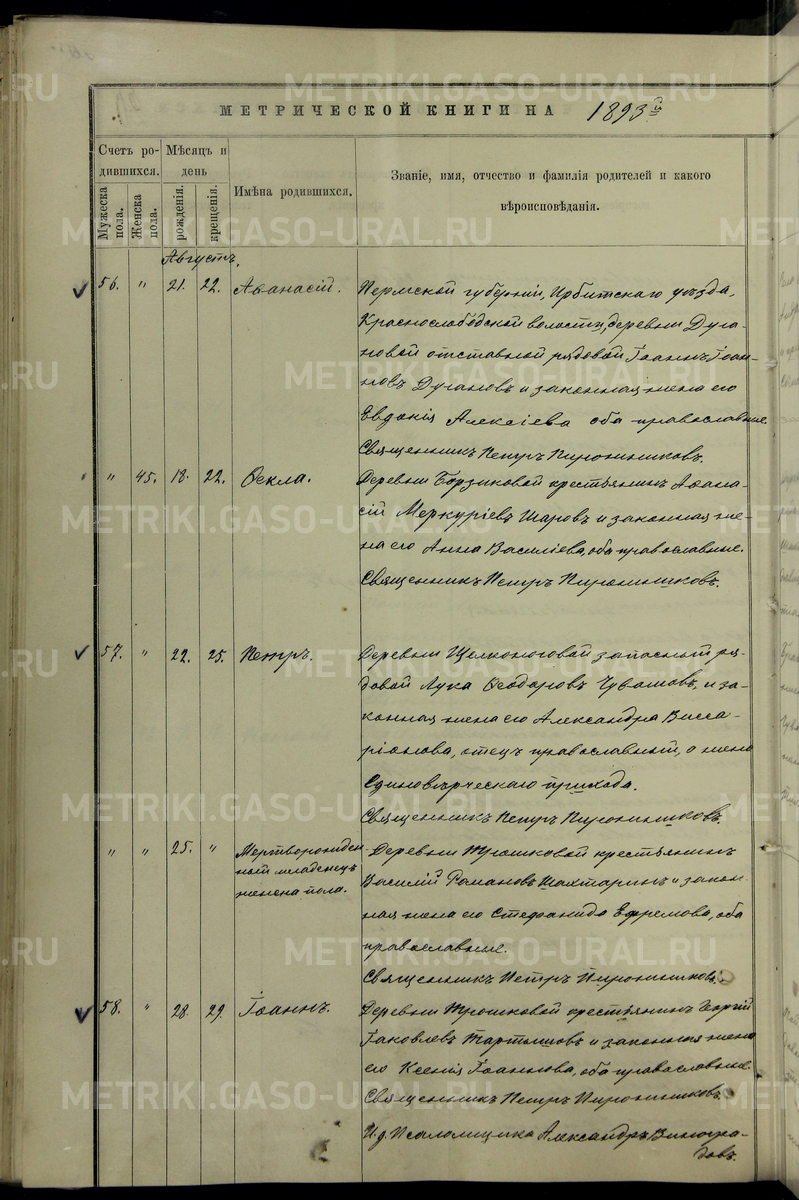 МЕТРИЧЕСКОЙ КНИГИ НА 1893й
Счетъ ро-
дившихся.
Мѣсяцъ и
день
Мужеска
пола.
Женска
пола.
рожденія.
крещенія.
Имена родившихся.
Званіе, имя, отчество и фамилія родителей и какого
вѣроисповѣданія.
Августъ.
56. " 21. 22. Аѳанасій. Пермской губерніи, Ирбитскаго уѣзда,
Краснослободской волости, деревни Дуга-
новой отставной рядовой Іоаннъ Іоан-
новъ Дугановъ и законная жена его
Евдокія Алексіева оба православные.
Священникъ Петръ
" 45. 18. 22. Ѳекла. Деревни Борзиковой крестьянинъ Аѳана-
сій Меркуріевъ Шаровъ и законная же-
на его Анна Василіева, оба православные.
Священникъ Петръ
57. " 22. 25. Петръ. Деревни Щелконоговой запасный ря-
довой Лука Ѳеодоровъ Чувашовъ, и за-
конная жена его Александра Висса-
ріонова, отецъ православный, а жена
Единовѣрческаго прихода.
Священникъ Петръ
" " 25. " Мертворожден-
ный младенецъ
женска пола.
Деревни Трошковой крестьянинъ
Василій Романовъ Шахтаринъ и закон-
ная жена его Стефанида Ефремова, оба
православные.
Священникъ Петръ
58. " 28. 29. Іоаннъ. Деревни Трошковой крестьянинъ Георгій
Іаковлевъ и законная жена
его Ксенія Іоаннова, оба православные.
Священникъ Петръ
И.д. Псаломщика Александръ Виногра-
довъ.
METRIKI.GASO-URAL.RU